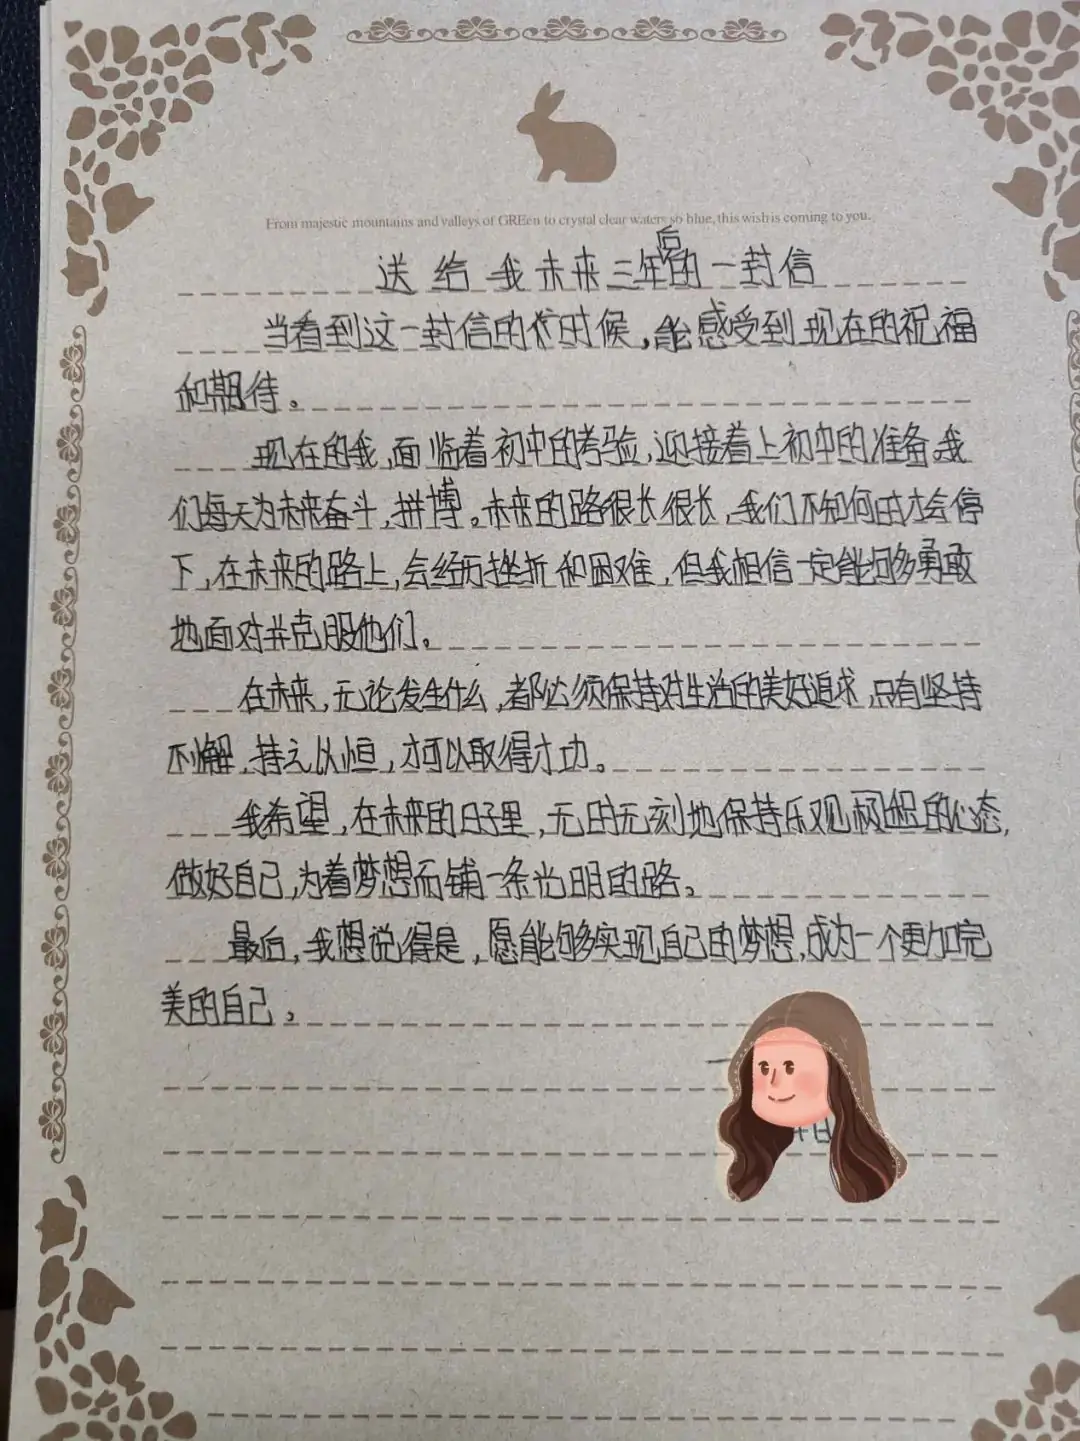 From majestic mountains and valleys of GREen to crystal clear waters so blue, this wish is coming to you.
送给我未来三年后的一封信
当看到这一封信的忙时候,能感受到现在的祝福
和期待。
现在的我,面临着初中的考验,迎接着上初中的准备。我
们每天为未来奋斗,拼博。未来的路很长很长,我们不知何时才会停
下,在未来的路上,会经历挫折和困难,但我相信一定能够勇敢
地面对并克服他们。
在未来,无论发生什么,都必须保持对生活的美好追求,只有坚持
不懈,持之以恒,才可以取得才功。
我希望,在未来的日子里,无时无刻地保持乐观积极的心态,
做好自己,为着梦想而铺一条光明的路。
最后,我想说得是,愿能够实现自己的梦想,成为一个更加完
美的自己。